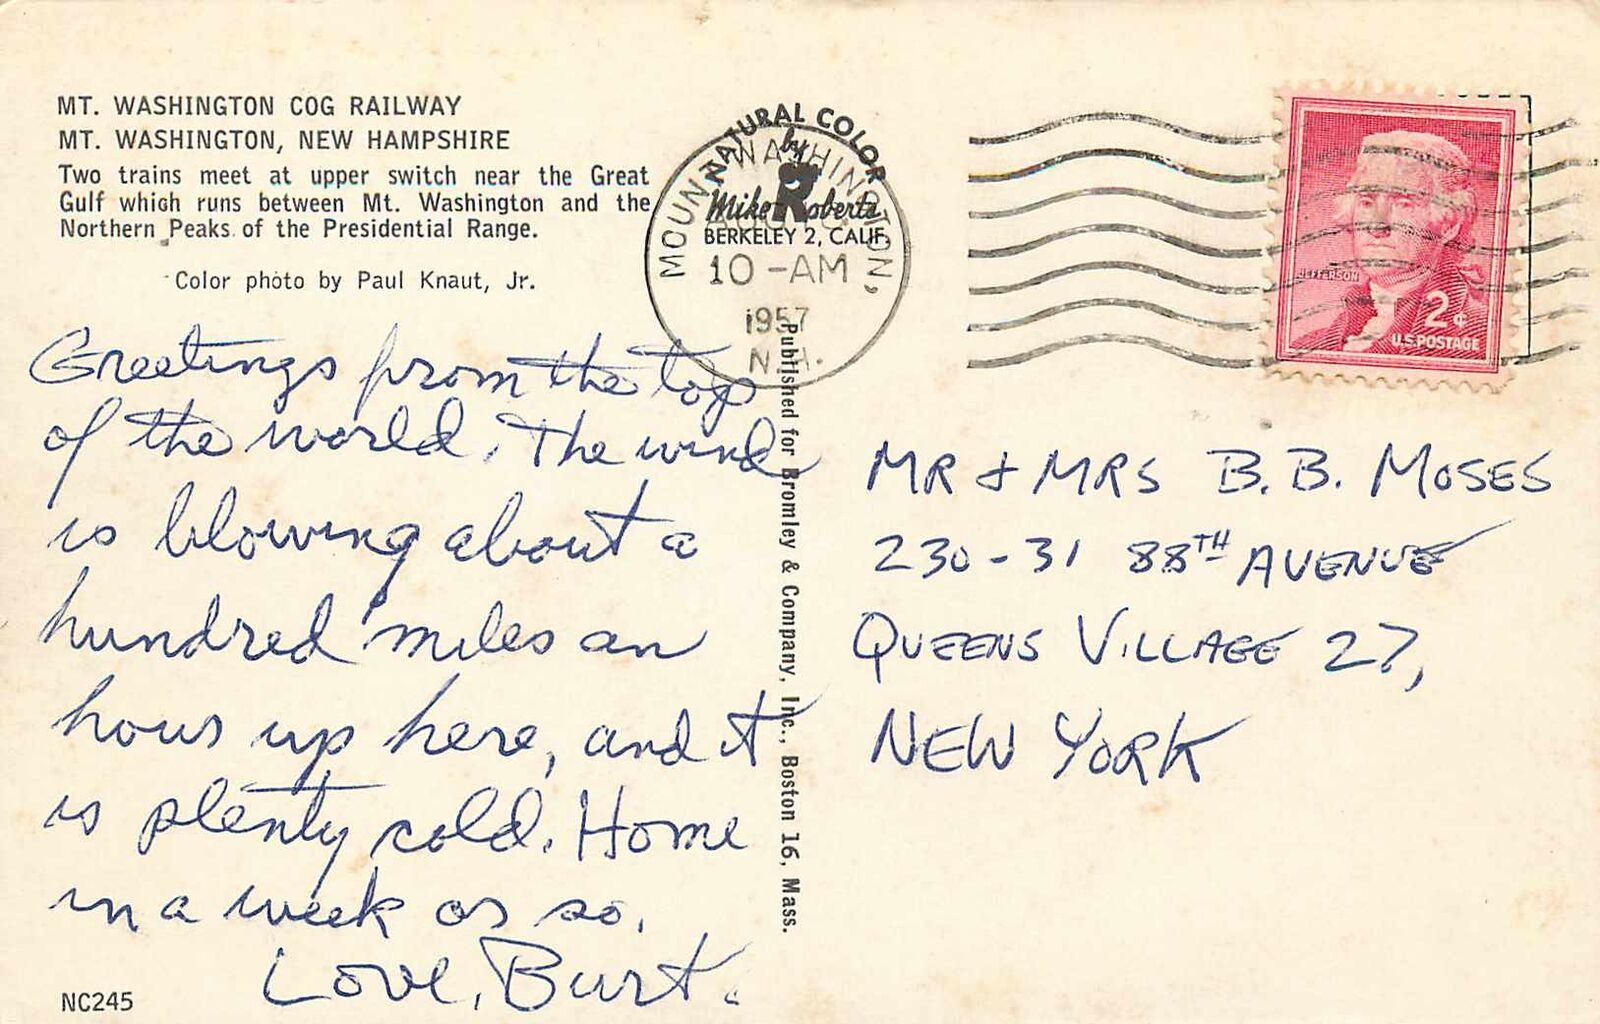 MT. WASHINGTON COG RAILWAY
MT. WASHINGTON, NEW HAMPSHIRE
Two trains meet at upper switch near the Great
Gulf which runs between Mt. Washington and the
Northern Peaks of the Presidential Range.
Color photo by Paul Knaut, Jr.
Greetings from the top
of the world. The wind
is blowing about a
hundred miles an
hour up here, and it
is plenty cold. Home
in a week or so.
Love, Burt.
NC245
NATURAL COLOR
by
Mike Roberts
BERKELEY 2, CALIF.
MOUNT WASHINGTON,
10-AM
1957
N.H.
Published for Bromley & Company, Inc., Boston 16, Mass.
JEFFERSON
2¢
U.S. POSTAGE
MR & MRS B. B. MOSES
230-31 88TH AVENUE
QUEENS VILLAGE 27,
NEW YORK